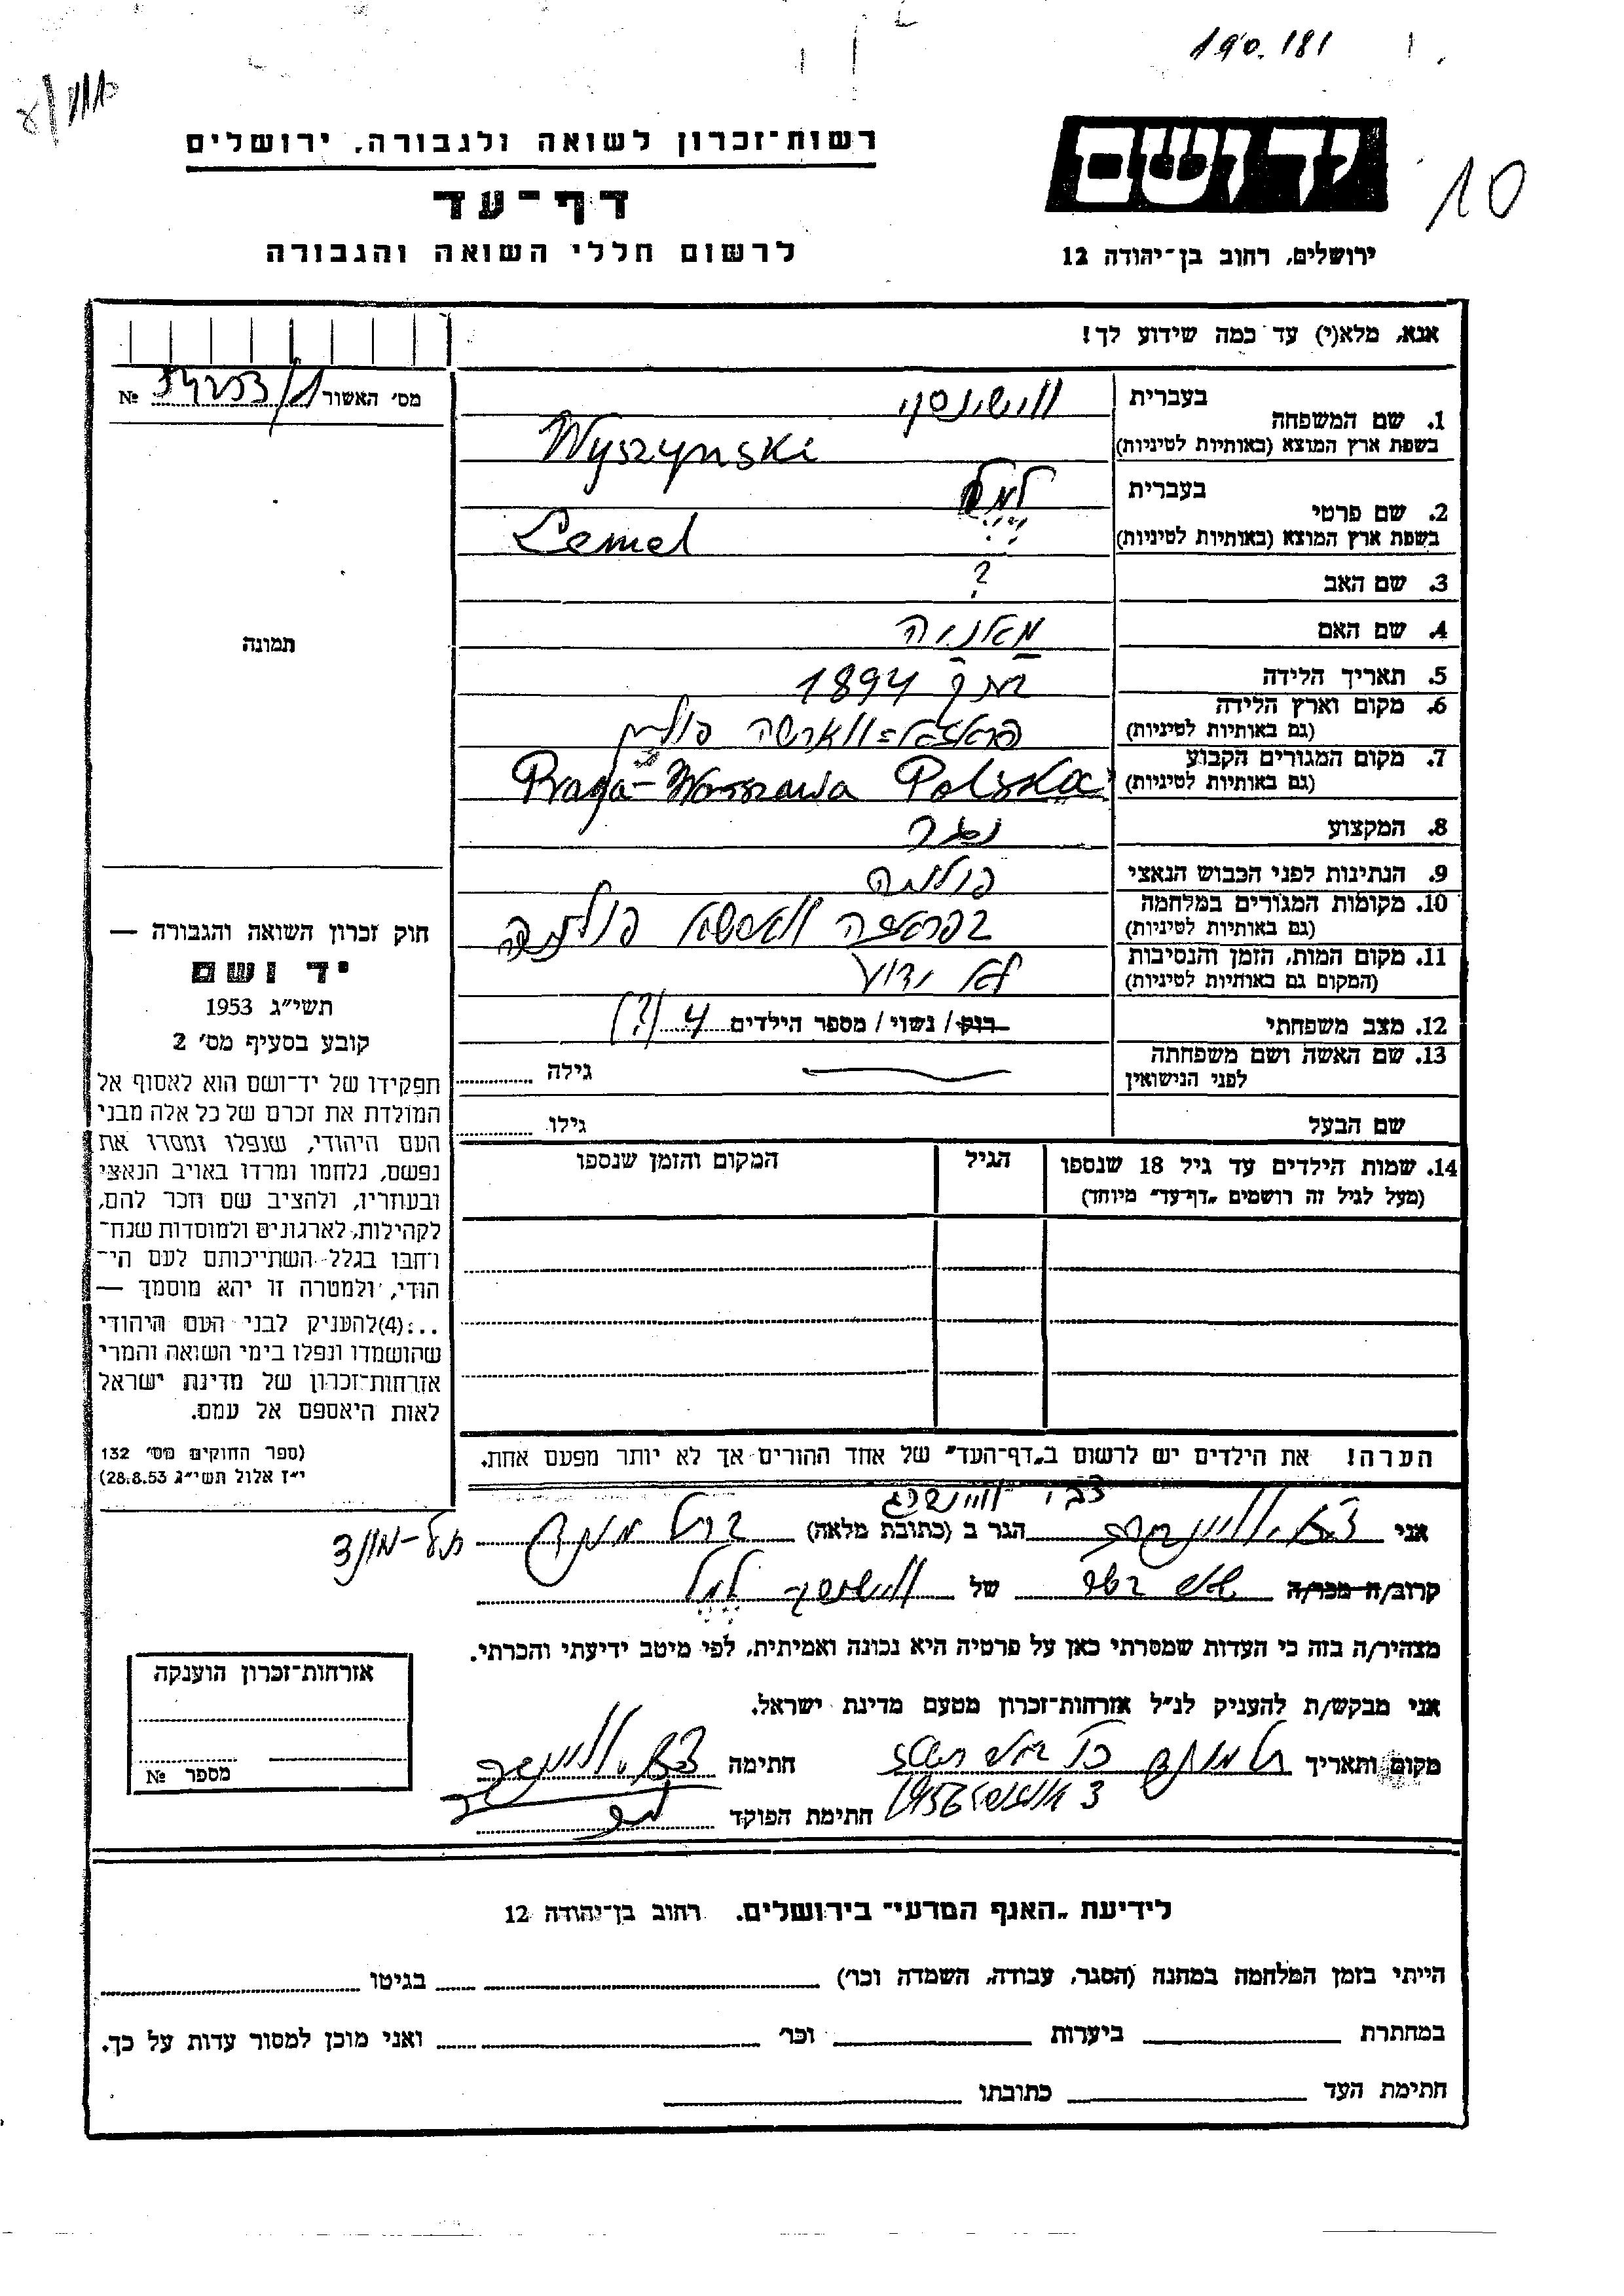 190.181
10
רשות־זכרון לשואה ולגבורה, ירושלים
יד ושם
דף־עד
לרשום חללי השואה והגבורה
ירושלים, רחוב בן־יהודה 12
אנא, מלא(י) עד כמה שידוע לך!
מס׳ האשור №
1. שם המשפחה בעברית ווישינסקי
בשפת ארץ המוצא (באותיות לטיניות) Wyszynski
2. שם פרטי בעברית למל
בשפת ארץ המוצא (באותיות לטיניות) Lemel
3. שם האב ?
4. שם האם מאניה
5. תאריך הלידה 1894
6. מקום וארץ הלידה פראגא-ווארשה פולין
(גם באותיות לטיניות)
7. מקום המגורים הקבוע Praga-Warszawa Polska
(גם באותיות לטיניות)
8. המקצוע נגר
9. הנתינות לפני הכבוש הנאצי פולנית
10. מקומות המגורים במלחמה
(גם באותיות לטיניות)
11. מקום המות, הזמן והנסיבות לא ידוע
(המקום גם באותיות לטיניות)
12. מצב משפחתי רווק/ נשוי/ מספר הילדים 4 (?)
13. שם האשה ושם משפחתה גילה
לפני הנישואין
שם הבעל גילו
14. שמות הילדים עד גיל 18 שנספו הגיל המקום והזמן שנספו
(מעל לגיל זה רושמים „דף־עד״ מיוחד)
הערה! את הילדים יש לרשום ב„דף־העד״ של אחד ההורים אך לא יותר מפעם אחת.
תמונה
חוק זכרון השואה והגבורה —
יד ושם
תשי״ג 1953
קובע בסעיף מס׳ 2
תפקידו של יד־ושם הוא לאסוף אל
המולדת את זכרם של כל אלה מבני
העם היהודי, שנפלו ומסרו את
נפשם, נלחמו ומרדו באויב הנאצי
ובעוזריו, ולהציב שם וזכר להם,
לקהילות, לארגונים ולמוסדות שנח־
רבו בגלל השתייכותם לעם הי־
הודי, ולמטרה זו יהא מוסמך —
...(4) להעניק לבני העם היהודי
שהושמדו ונפלו בימי השואה והמרי
אזרחות־זכרון של מדינת ישראל
לאות היאספם אל עמם.
(ספר החוקים מס׳ 132
י״ז אלול תשי״ג 28.8.53)
צבי ויינשטג
אני הגר ב (כתובת מלאה) תל-מונד
קרוב/ה מכר/ה של ווישינסקי למל
מצהיר/ה בזה כי העדות שמסרתי כאן על פרטיה היא נכונה ואמיתית, לפי מיטב ידיעתי והכרתי.
אני מבקש/ת להעניק לנ״ל אזרחות־זכרון מטעם מדינת ישראל.
מקום ותאריך תל מונד חתימה
3 אוגוסט 1956 חתימת הפוקד
אזרחות־זכרון הוענקה
מספר №
לידיעת „האגף המדעי״ בירושלים, רחוב בן־יהודה 12
הייתי בזמן המלחמה במחנה (הסגר, עבודה, השמדה וכו׳) בגיטו
במחתרת ביערות וכו׳ ואני מוכן למסור עדות על כך.
חתימת העד כתובתו